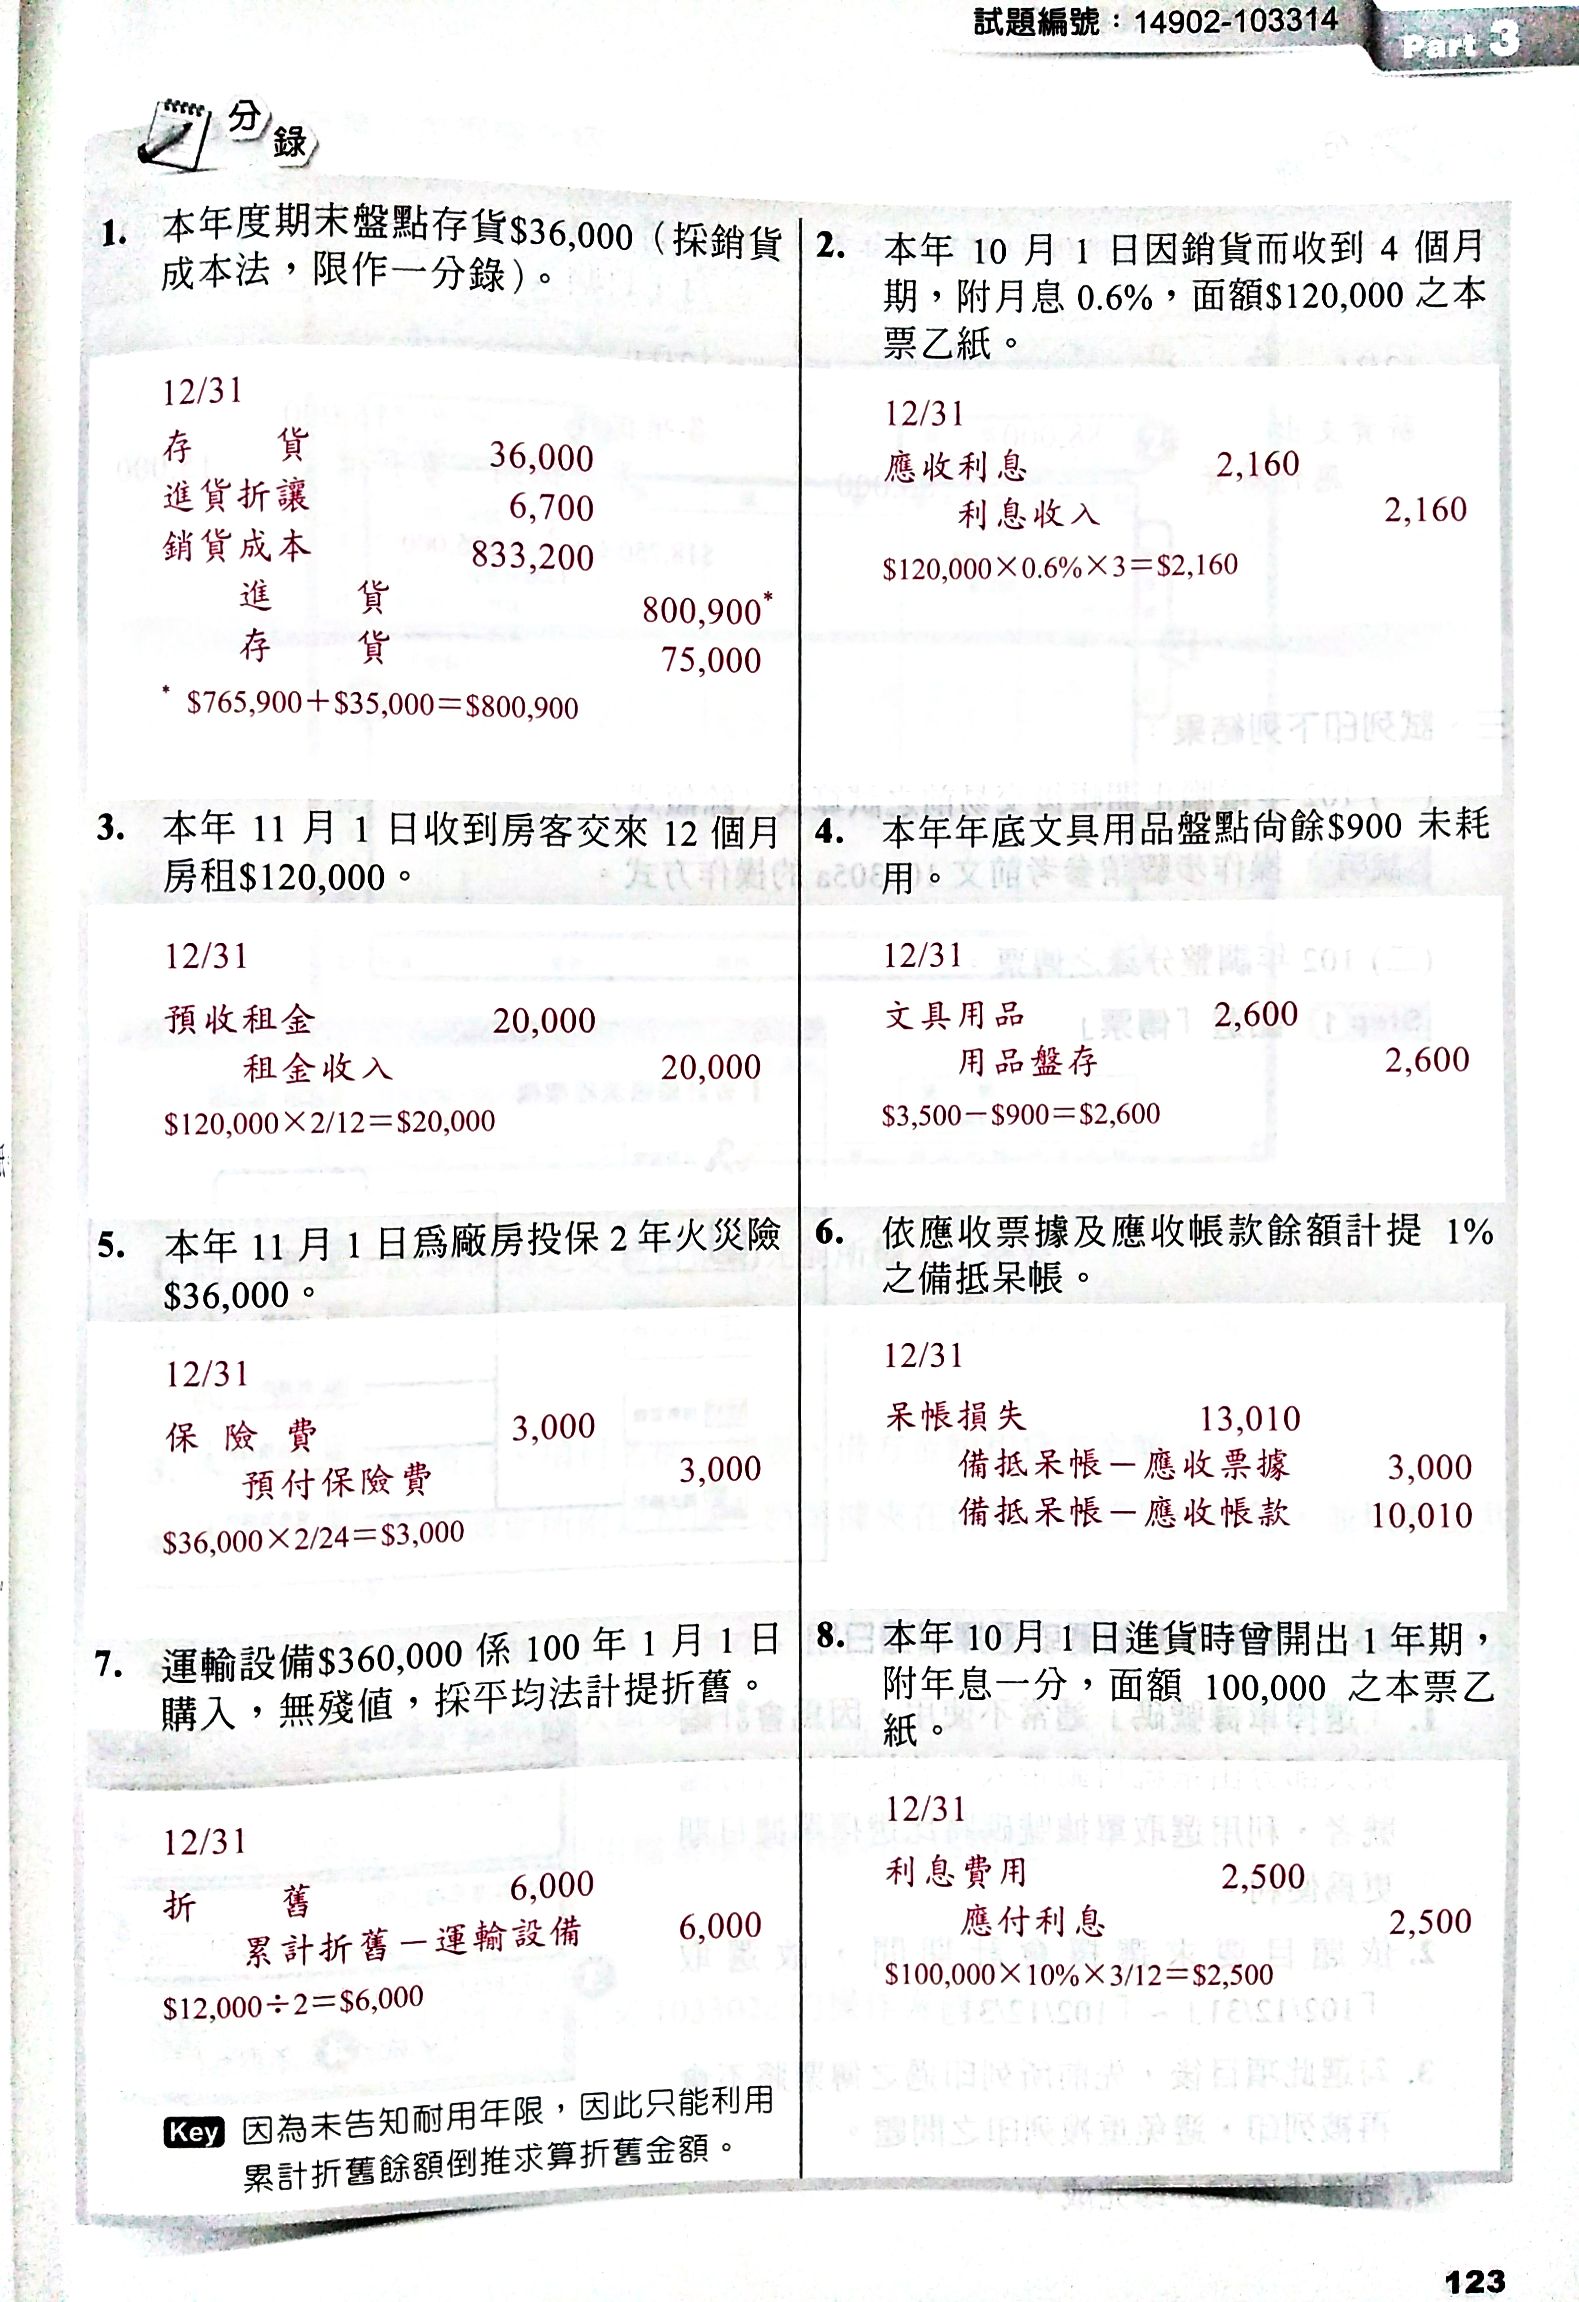 試題編號：14902-103314
Part 3
分錄
1. 本年度期末盤點存貨$36,000（採銷貨
成本法，限作一分錄）。
12/31
存　貨 36,000
進貨折讓 6,700
銷貨成本 833,200
進　貨 800,900*
存　貨 75,000
* $765,900＋$35,000＝$800,900
2. 本年 10 月 1 日因銷貨而收到 4 個月
期，附月息 0.6%，面額$120,000 之本
票乙紙。
12/31
應收利息 2,160
利息收入 2,160
$120,000×0.6%×3＝$2,160
3. 本年 11 月 1 日收到房客交來 12 個月
房租$120,000。
12/31
預收租金 20,000
租金收入 20,000
$120,000×2/12＝$20,000
4. 本年年底文具用品盤點尚餘$900 未耗
用。
12/31
文具用品 2,600
用品盤存 2,600
$3,500－$900＝$2,600
5. 本年 11 月 1 日為廠房投保 2 年火災險
$36,000。
12/31
保險費 3,000
預付保險費 3,000
$36,000×2/24＝$3,000
6. 依應收票據及應收帳款餘額計提 1%
之備抵呆帳。
12/31
呆帳損失 13,010
備抵呆帳－應收票據 3,000
備抵呆帳－應收帳款 10,010
7. 運輸設備$360,000 係 100 年 1 月 1 日
購入，無殘值，採平均法計提折舊。
12/31
折　舊 6,000
累計折舊－運輸設備 6,000
$12,000÷2＝$6,000
Key 因為未告知耐用年限，因此只能利用
累計折舊餘額倒推求算折舊金額。
8. 本年 10 月 1 日進貨時曾開出 1 年期，
附年息一分，面額 100,000 之本票乙
紙。
12/31
利息費用 2,500
應付利息 2,500
$100,000×10%×3/12＝$2,500
123